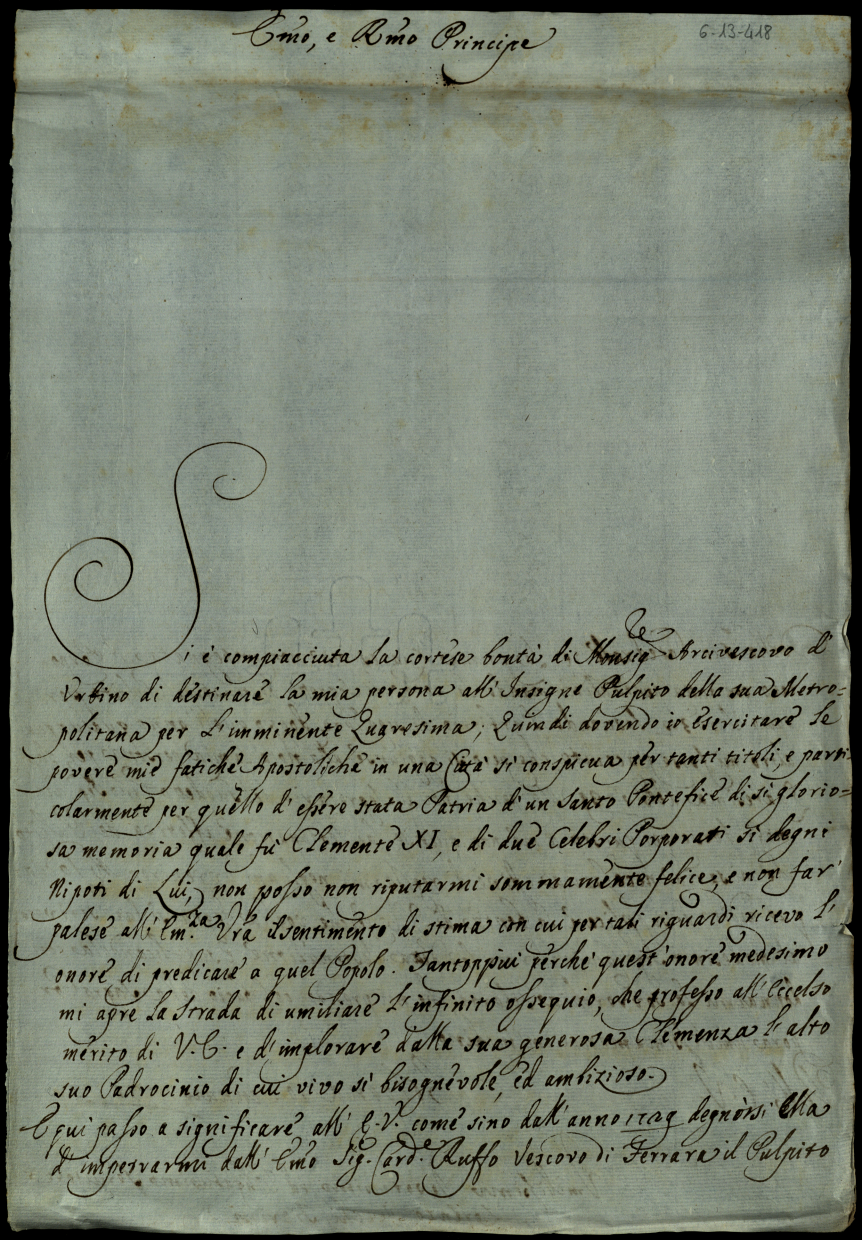 Emo, e Rmo Principe
6-13-418
Si è compiacciuta la cortese bontà di Monsigre Arcivescovo d'
Urbino di destinare la mia persona all'Insigne Pulpito della sua Metro=
politana per l'imminente Quaresima; Quindi dovendo io esercitare le
povere mie fatiche Apostoliche in una Città sì conspicua per tanti titoli, e parti-
colarmente per quello d'essere stata Patria d'un Santo Pontefice di sì glorio=
sa memoria quale fù Clemente XI, e di due Celebri Porporati sì degni
Nipoti di Lui, non posso non riputarmi sommamente felice, e non far'
palese all'Em.za Vra il sentimento di stima con cui per tali riguardi ricevo l'
onore di predicare a quel Popolo. Tantoppiui perche quest'onore medesimo
mi apre la strada di umiliare l'infinito ossequio, che professo all'Eccelso
merito di V.E. e d'implorare dalla sua generosa Clemenza l'alto
suo Padrocinio di cui vivo sì bisognevole, ed ambizioso.
E qui passo a significare all'E.V. come sino dall'anno degnòssi Ella
d'impetrarmi dall'Emo Sig. Card.e Ruffo Vescovo di Ferrara il Pulpito